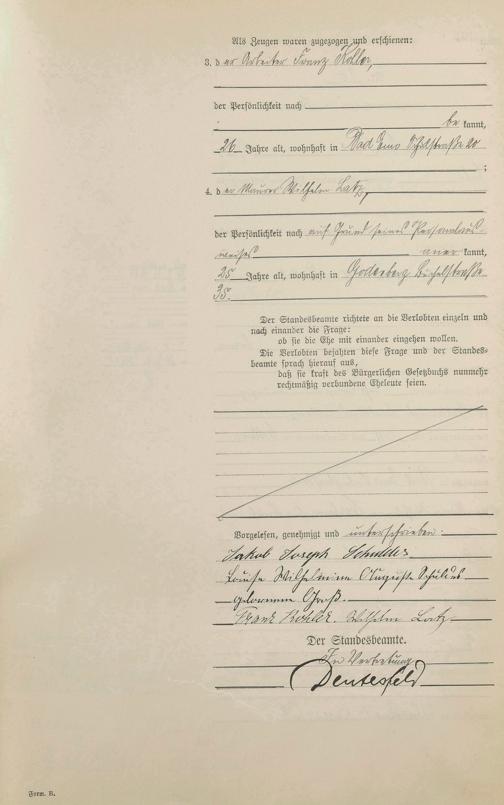 Als Zeugen waren zugezogen und erschienen:
3. der Arbeiter Franz
der Persönlichkeit nach
be kannt,
26 Jahre alt, wohnhaft in Bad Ems
;
4. der Maurer Wilhelm Latz,
der Persönlichkeit nach auf Grund seines Personalaus-
weises aner kannt,
25 Jahre alt, wohnhaft in Godesberg
35.
Der Standesbeamte richtete an die Verlobten einzeln und
nach einander die Frage:
ob sie die Ehe mit einander eingehen wollen.
Die Verlobten bejahten diese Frage und der Standes-
beamte sprach hierauf aus,
daß sie kraft des Bürgerlichen Gesetzbuchs nunmehr
rechtmäßig verbundene Eheleute seien.
Vorgelesen, genehmigt und unterschrieben:
Jakob Joseph
Louise Wilhelmine Auguste
geborenne Groß.
Franz Wilhelm Latz
Der Standesbeamte.
In Vertretung
Form. B.